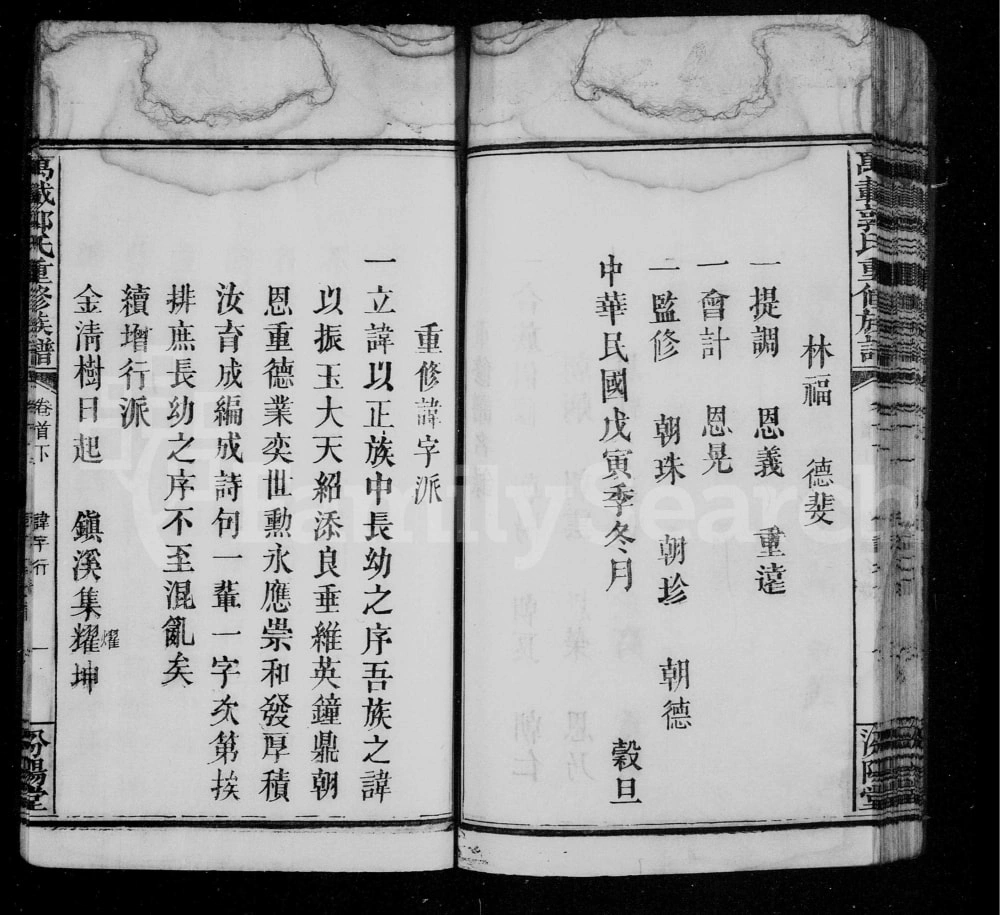 萬載郭氏重修族譜
汾陽堂
林福　德斐
一提調　恩義　重遠
一會計　恩晃
一監修　朝珠　朝珍　朝德
中華民國戊寅季冬月　穀旦
重修諱字派
一立諱以正族中長幼之序吾族之諱
以振玉大天紹添良垂維英鐘鼎朝
恩重德業奕世勲永應崇和發厚積
汝育成編成詩句一輩一字次第挨
排庶長幼之序不至混亂矣
續增行派
金淸樹日起　鎭溪集耀坤
燿
萬載郭氏重修族譜
卷首下
諱字行
一
汾陽堂
FamilySearch